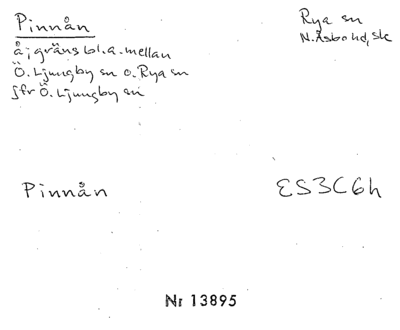 Pinnån
å; gräns bl.a. mellan
Ö. Ljungby sn o. Rya sn
jfr Ö. Ljungby sn
Rya sn
N. Åsbo hd, Sk
Pinnån
ES3C6h
Nr 13895